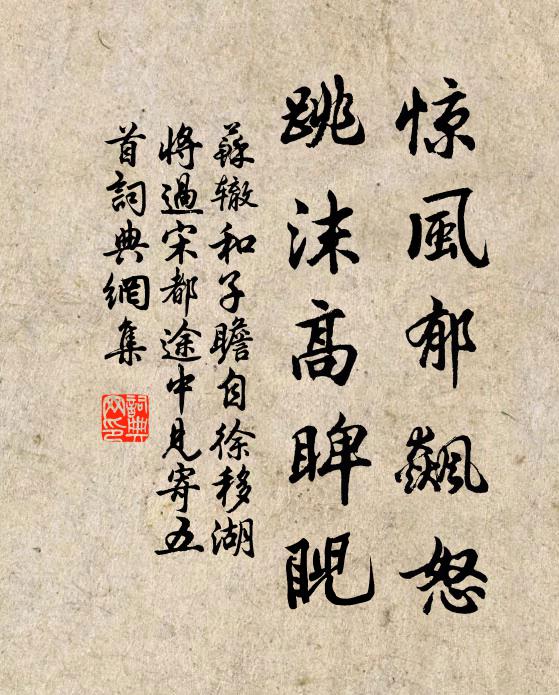 惊風郁飙怒
跳沫高睥睨
蘇辙和子瞻自徐移湖
將過宋都途中見寄五
首詞典網集
詞典
网印